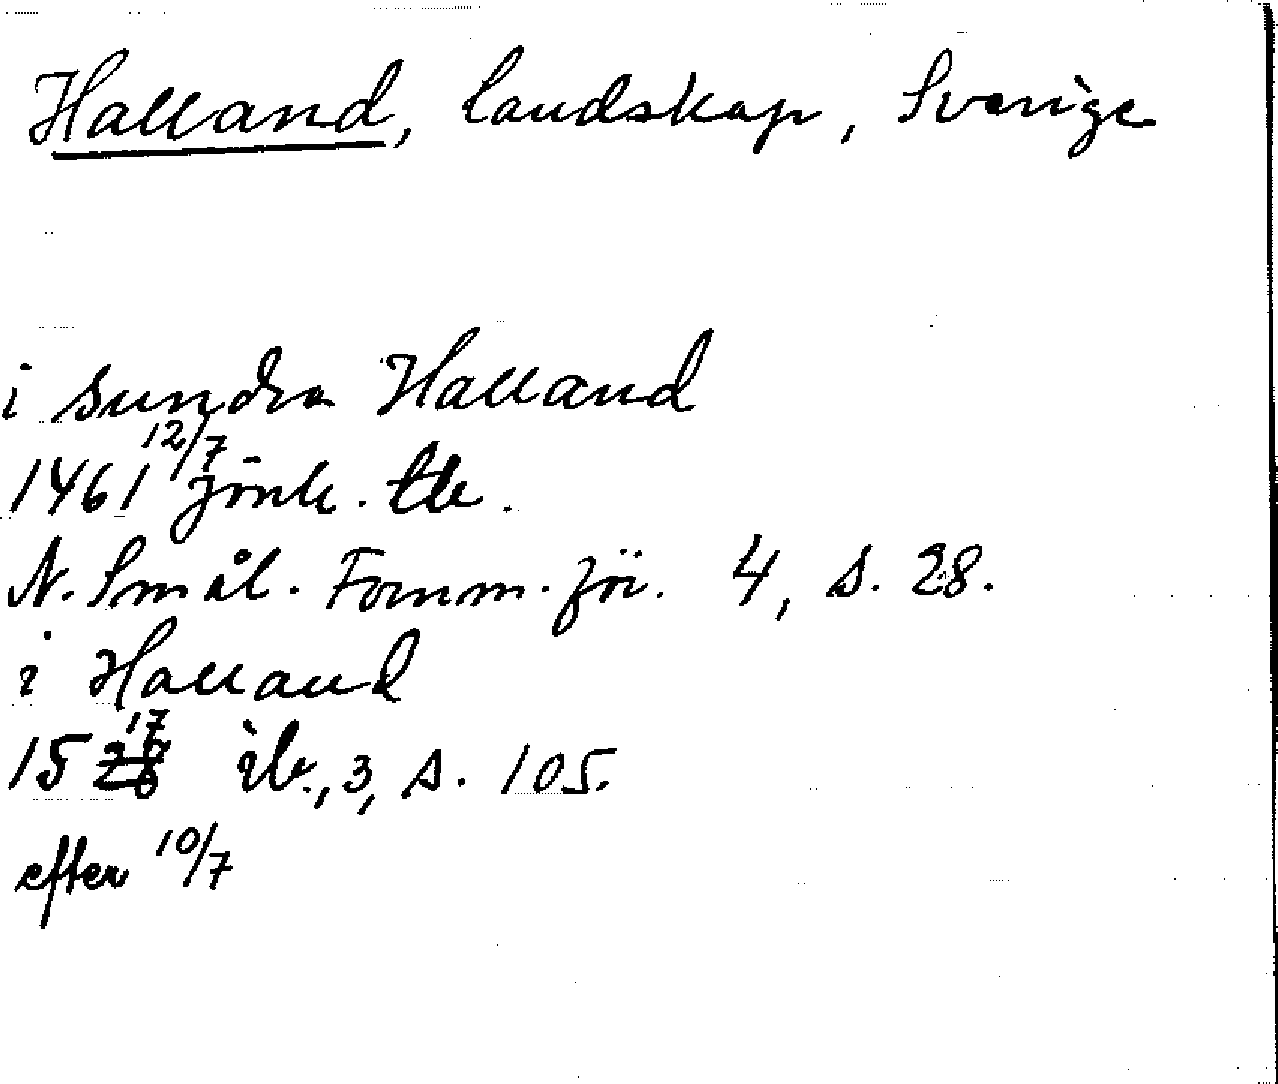 Halland, landskap, Sverige
i sundra Halland
1461 12/7 Jönk. tb.
N. Smål. Fornm. för. 4, s. 28.
i Halland
1517 ib., 3, s. 105.
efter 10/7